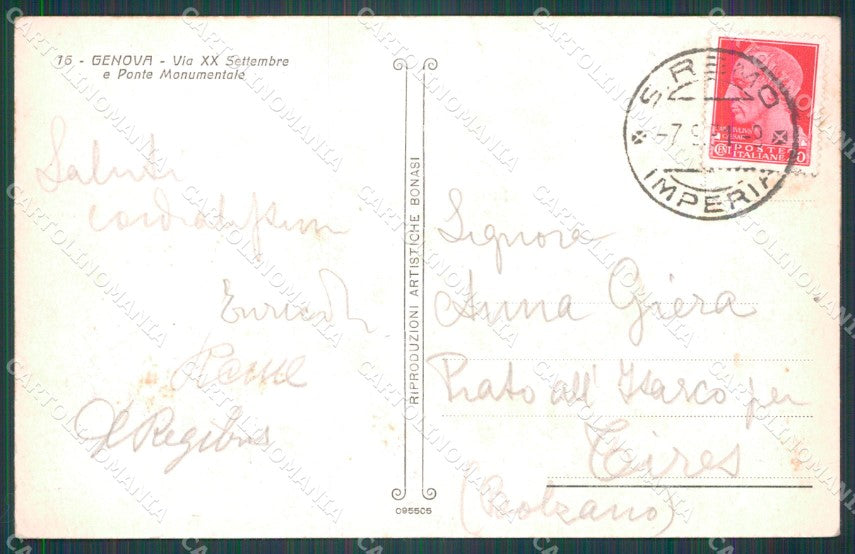 16 - GENOVA - Via XX Settembre
e Ponte Monumentale
Saluti
cordialissimi
Enrico
De Regibus
RIPRODUZIONI ARTISTICHE BONASI
095505
S. REMO
IMPERIA
POSTE
ITALIANE
CENT
Signora
Anna Giera
Prato all' Isarco per
Tires
(Bolzano)
CARTOLINOMANIA